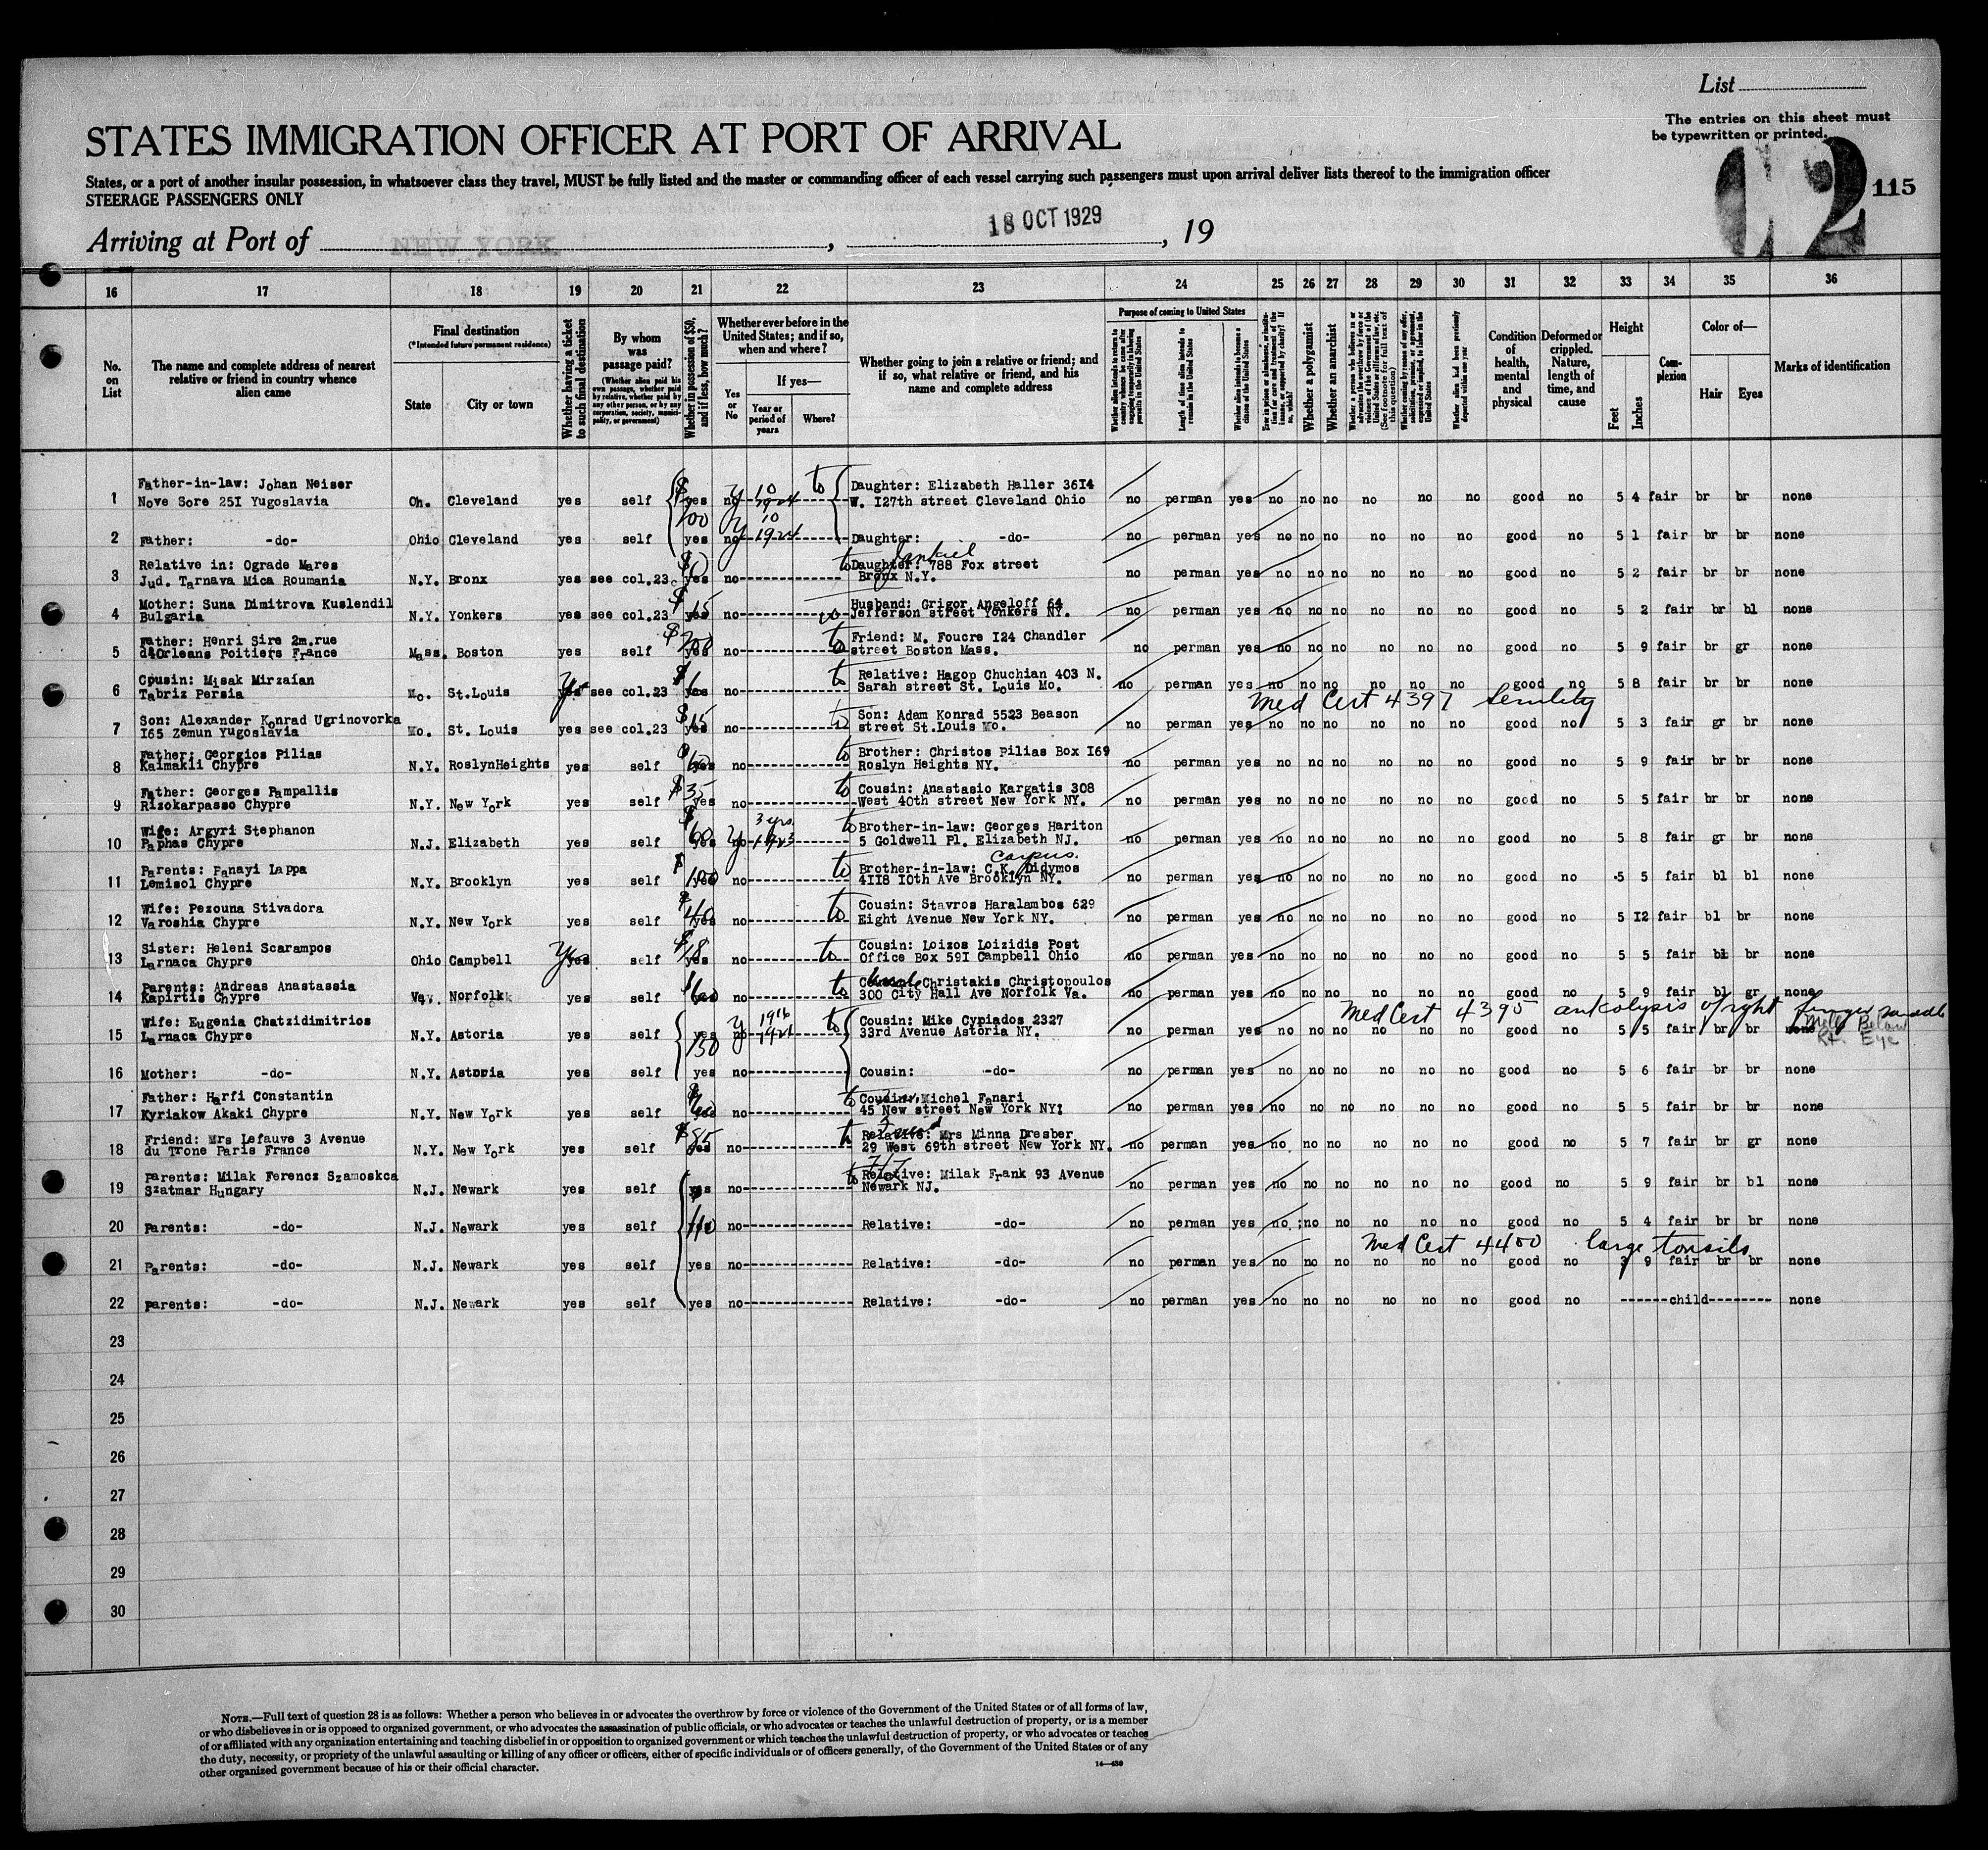 List
The entries on this sheet must
be typewritten or printed.
STATES IMMIGRATION OFFICER AT PORT OF ARRIVAL
115
States, or a port of another insular possession, in whatsoever class they travel, MUST be fully listed and the master or commanding officer of each vessel carrying such passengers must upon arrival deliver lists thereof to the immigration officer
STEERAGE PASSENGERS ONLY
Arriving at Port of NEW YORK, 18 OCT 1929, 19
16 17 18 19 20 21 22 23 24 25 26 27 28 29 30 31 32 33 34 35 36
No. on List
The name and complete address of nearest relative or friend in country whence alien came
Final destination
(*Intended future permanent residence)
State City or town
Whether having a ticket to such final destination
By whom was passage paid?
(Whether alien paid his own passage, whether paid by relative, whether paid by any other person, or by any corporation, society, municipality, or government)
Whether in possession of $50, and if less, how much?
Whether ever before in the United States; and if so, when and where?
Yes or No
If yes—
Year or period of years Where?
Whether going to join a relative or friend; and if so, what relative or friend, and his name and complete address
Purpose of coming to United States
Length of time alien intends to remain in the United States
Whether alien intends to become a citizen of the United States
Whether a polygamist
Whether an anarchist
Condition of health, mental and physical
Deformed or crippled. Nature, length of time, and cause
Height
Feet Inches
Complexion
Color of—
Hair Eyes
Marks of identification
Father-in-law: Johan Neiser Daughter: Elizabeth Haller 36I4
1 Nove Sore 25I Yugoslavia Oh. Cleveland yes self yes no 1924 W. I27th street Cleveland Ohio no perman yes no no no no no no good no 5 4 fair br br none
2 Father: -do- Ohio Cleveland yes self yes no 1924 Daughter: -do- no perman yes no no no no no no good no 5 1 fair br br none
Relative in: Ograde Mares Daughter: 788 Fox street
3 Jud. Tarnava Mica Roumania N.Y. Bronx yes see col.23 yes no Bronx N.Y. no perman yes no no no no no no good no 5 2 fair br br none
Mother: Suna Dimitrova Kuslendil Husband: Grigor Angeloff 64
4 Bulgaria N.Y. Yonkers yes see col.23 $15 yes no Jefferson street Yonkers NY. no perman yes no no no no no no good no 5 2 fair br bl none
Father: Henri Sire 2m.rue Friend: M. Foucre I24 Chandler
5 d'Orleans Poitiers France Mass. Boston yes self $200 yes no to street Boston Mass. no perman yes no no no no no no good no 5 9 fair br gr none
Cousin: Misak Mirzaian Relative: Hagop Chuchian 403 N.
6 Tabriz Persia Mo. St.Louis yes see col.23 no to Sarah street St. Louis Mo. no perman yes no no no no no no good no 5 8 fair br br none
Med Cert 4397 Senility
Son: Alexander Konrad Ugrinovorka Son: Adam Konrad 5523 Beason
7 I65 Zemun Yugoslavia Mo. St. Louis yes see col.23 $15 yes no to street St.Louis Mo. no perman yes no no no no no no good no 5 3 fair gr br none
Father: Georgios Pilias Brother: Christos Pilias Box I69
8 Kaimakii Chypre N.Y. RoslynHeights yes self yes no to Roslyn Heights NY. no perman yes no no no no no no good no 5 9 fair br br none
Father: Georges Pampallis Cousin: Anastasio Kargatis 308
9 Rizokarpasso Chypre N.Y. New York yes self $35 yes no to West 40th street New York NY. no perman yes no no no no no no good no 5 5 fair br br none
Wife: Argyri Stephanon 3 yrs. Brother-in-law: Georges Hariton
10 Paphas Chypre N.J. Elizabeth yes self $60 yes no 1923 to 5 Goldwell Pl. Elizabeth NJ. no perman yes no no no no no no good no 5 8 fair gr br none
Parents: Panayi Lappa Brother-in-law: C.K. Didymos
11 Lemisol Chypre N.Y. Brooklyn yes self $100 yes no to 4II8 I0th Ave Brooklyn NY. no perman yes no no no no no no good no 5 5 fair bl bl none
Wife: Pezouna Stivadora Cousin: Stavros Haralambos 629
12 Varoshia Chypre N.Y. New York yes self $40 yes no to Eight Avenue New York NY. no perman yes no no no no no no good no 5 I2 fair bl br none
Sister: Heleni Scarampos Cousin: Loizos Loizidis Post
13 Larnaca Chypre Ohio Campbell yes self $18 yes no to Office Box 59I Campbell Ohio no perman yes no no no no no no good no 5 5 fair bl br none
Parents: Andreas Anastassia Christakis Christopoulos
14 Kapirtis Chypre Va. Norfolk yes self no to 300 City Hall Ave Norfolk Va. no perman yes no no no no no no good no 5 9 fair bl gr none
Med Cert 4395 ankolysis of right finger
Wife: Eugenia Chatzidimitrios 1916 Cousin: Mike Cypiados 2327
15 Larnaca Chypre N.Y. Astoria yes self yes no 1921 to 33rd Avenue Astoria NY. no perman yes no no no no no no good no 5 5 fair br br none Mole Below Rt. Eye
150
16 Mother: -do- N.Y. Astoria yes self yes no Cousin: -do- no perman yes no no no no no no good no 5 6 fair br br none
Father: Harfi Constantin Cousin: Michel Fanari
17 Kyriakow Akaki Chypre N.Y. New York yes self no to 45 New street New York NY: no perman yes no no no no no no good no 5 5 fair br br none
Friend: Mrs Lefauve 3 Avenue Relative: Friend Mrs Minna Dresber
18 du Trone Paris France N.Y. New York yes self $85 yes no to 29 West 69th street New York NY. no perman yes no no no no no no good no 5 7 fair br gr none
Parents: Milak Ferencz Szamoskca Relative: Milak Frank 93 Avenue
19 Szatmar Hungary N.J. Newark yes self yes no to Newark NJ. no perman yes no no no no no no good no 5 9 fair br bl none
20 Parents: -do- N.J. Newark yes self yes 110 no Relative: -do- no perman yes no no no no no no good no 5 4 fair br br none
Med Cert 4400 large tonsils
21 Parents: -do- N.J. Newark yes self yes no Relative: -do- no perman yes no no no no no no good no 3 9 fair br br none
22 Parents: -do- N.J. Newark yes self yes no Relative: -do- no perman yes no no no no no no good no child none
23
24
25
26
27
28
29
30
NOTE.—Full text of question 28 is as follows: Whether a person who believes in or advocates the overthrow by force or violence of the Government of the United States or of all forms of law,
or who disbelieves in or is opposed to organized government, or who advocates the assassination of public officials, or who advocates or teaches the unlawful destruction of property, or is a member
of or affiliated with any organization entertaining and teaching disbelief in or opposition to organized government or which teaches the unlawful destruction of property, or who advocates or teaches
the duty, necessity, or propriety of the unlawful assaulting or killing of any officer or officers, either of specific individuals or of officers generally, of the Government of the United States or of any
other organized government because of his or their official character.
14—430